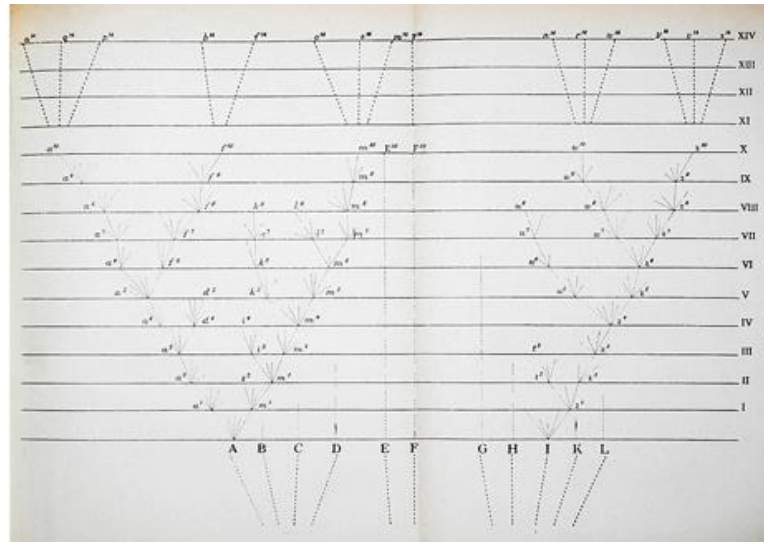 a¹⁴ q¹⁴ p¹⁴ b¹⁴ f¹⁴ o¹⁴ e¹⁴ m¹⁴ F¹⁴ n¹⁴ r¹⁴ w¹⁴ y¹⁴ v¹⁴ z¹⁴ XIV
XIII
XII
XI
a¹⁰ f¹⁰ m¹⁰ E¹⁰ F¹⁰ w¹⁰ z¹⁰ X
a⁹ f⁹ m⁹ w⁹ z⁹ IX
a⁸ f⁸ k⁸ l⁸ m⁸ w⁸ z⁸ VIII
a⁷ f⁷ l⁷ m⁷ w⁷ z⁷ VII
a⁶ f⁶ k⁶ m⁶ z⁶ VI
a⁵ d⁵ k⁵ m⁵ z⁵ V
a⁴ d⁴ i⁴ m⁴ z⁴ IV
a³ i³ m³ t³ z³ III
a² s² m² t² z² II
a¹ m¹ z¹ I
A B C D E F G H I K L